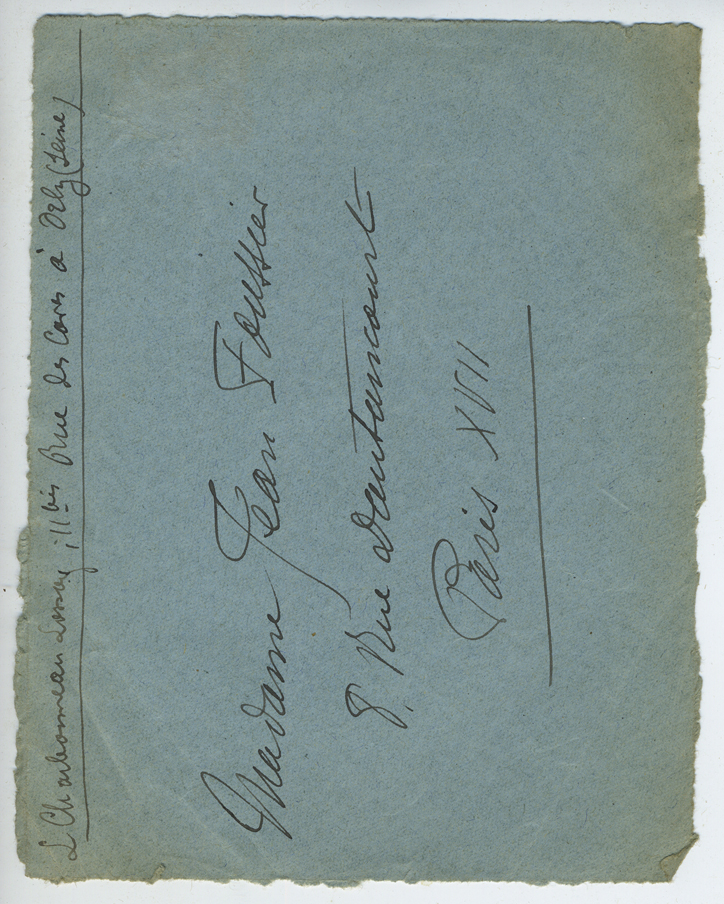 L Charbonneau Lassay, 11 bis Rue des Caves à Orly (Seine)
Madame Jean Foussier
8, Rue Dautancourt
Paris XVII